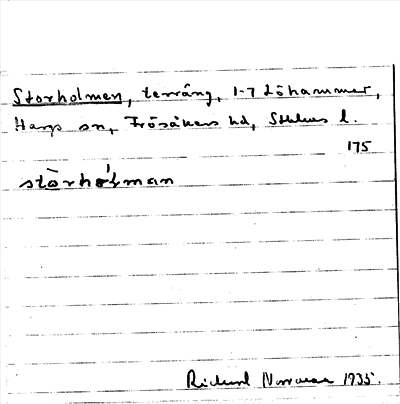 Storholmen, terräng, 1-7 Löhammar,
Hargs sn, Frösåkers hd, Sthlms l.
175
stòrhól̥man
Richard Norrman 1935.